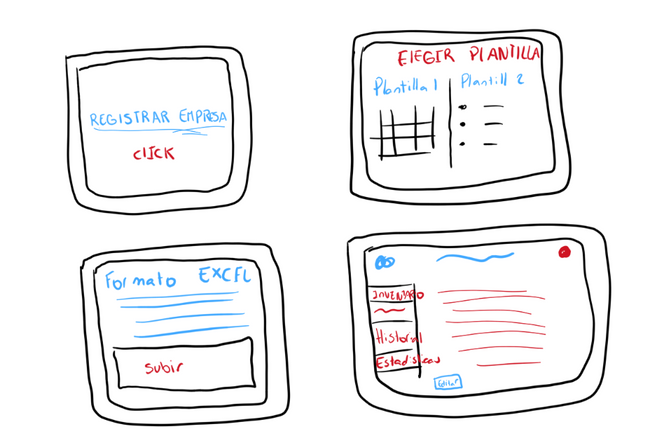 REGISTRAR EMPRESA
CLICK
ELEGIR PLANTILLA
Plantilla 1
Plantill 2
Formato EXCEL
subir
INVENTARIO
Historial
Estadisticas
Editar